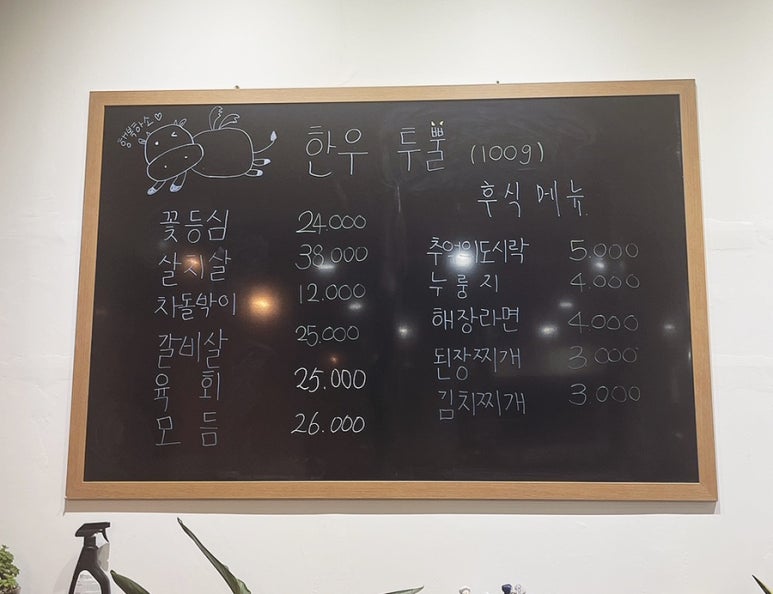 행복하소♡
한우 투뿔 (100g)
꽃등심 24.000
살치살 38.000
차돌박이 12.000
갈비살 25.000
육 회 25.000
모 듬 26.000
후식 메뉴
추억의도시락 5.000
누룽지 4.000
해장라면 4.000
된장찌개 3.000
김치찌개 3.000